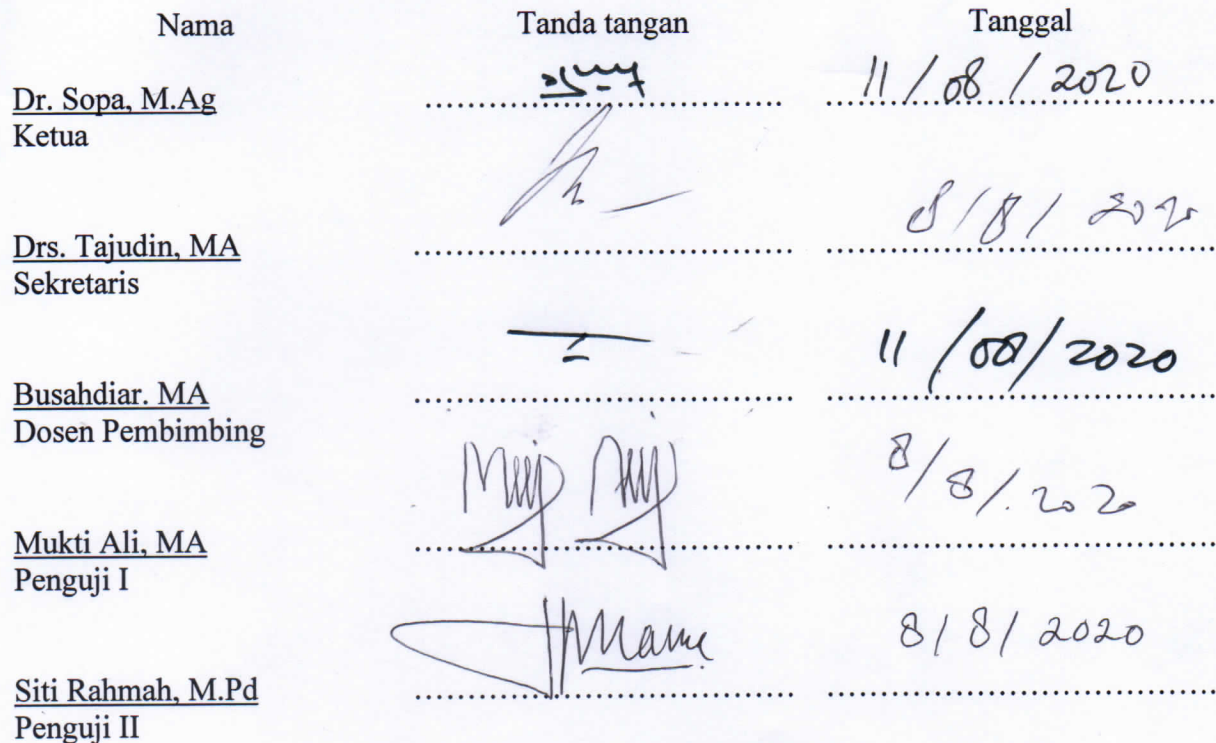 Nama Tanda tangan Tanggal
Dr. Sopa, M.Ag .................................... 11/08/2020
Ketua
8/8/2020
Drs. Tajudin, MA .................................... ....................................
Sekretaris
11/08/2020
Busahdiar. MA .................................... ....................................
Dosen Pembimbing
8/8/.2020
Mukti Ali, MA .................................... ....................................
Penguji I
8/8/2020
Siti Rahmah, M.Pd .................................... ....................................
Penguji II